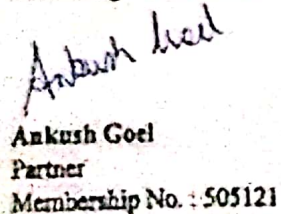 Ankush Goel
Ankush Goel
Partner
Membership No. : 505121